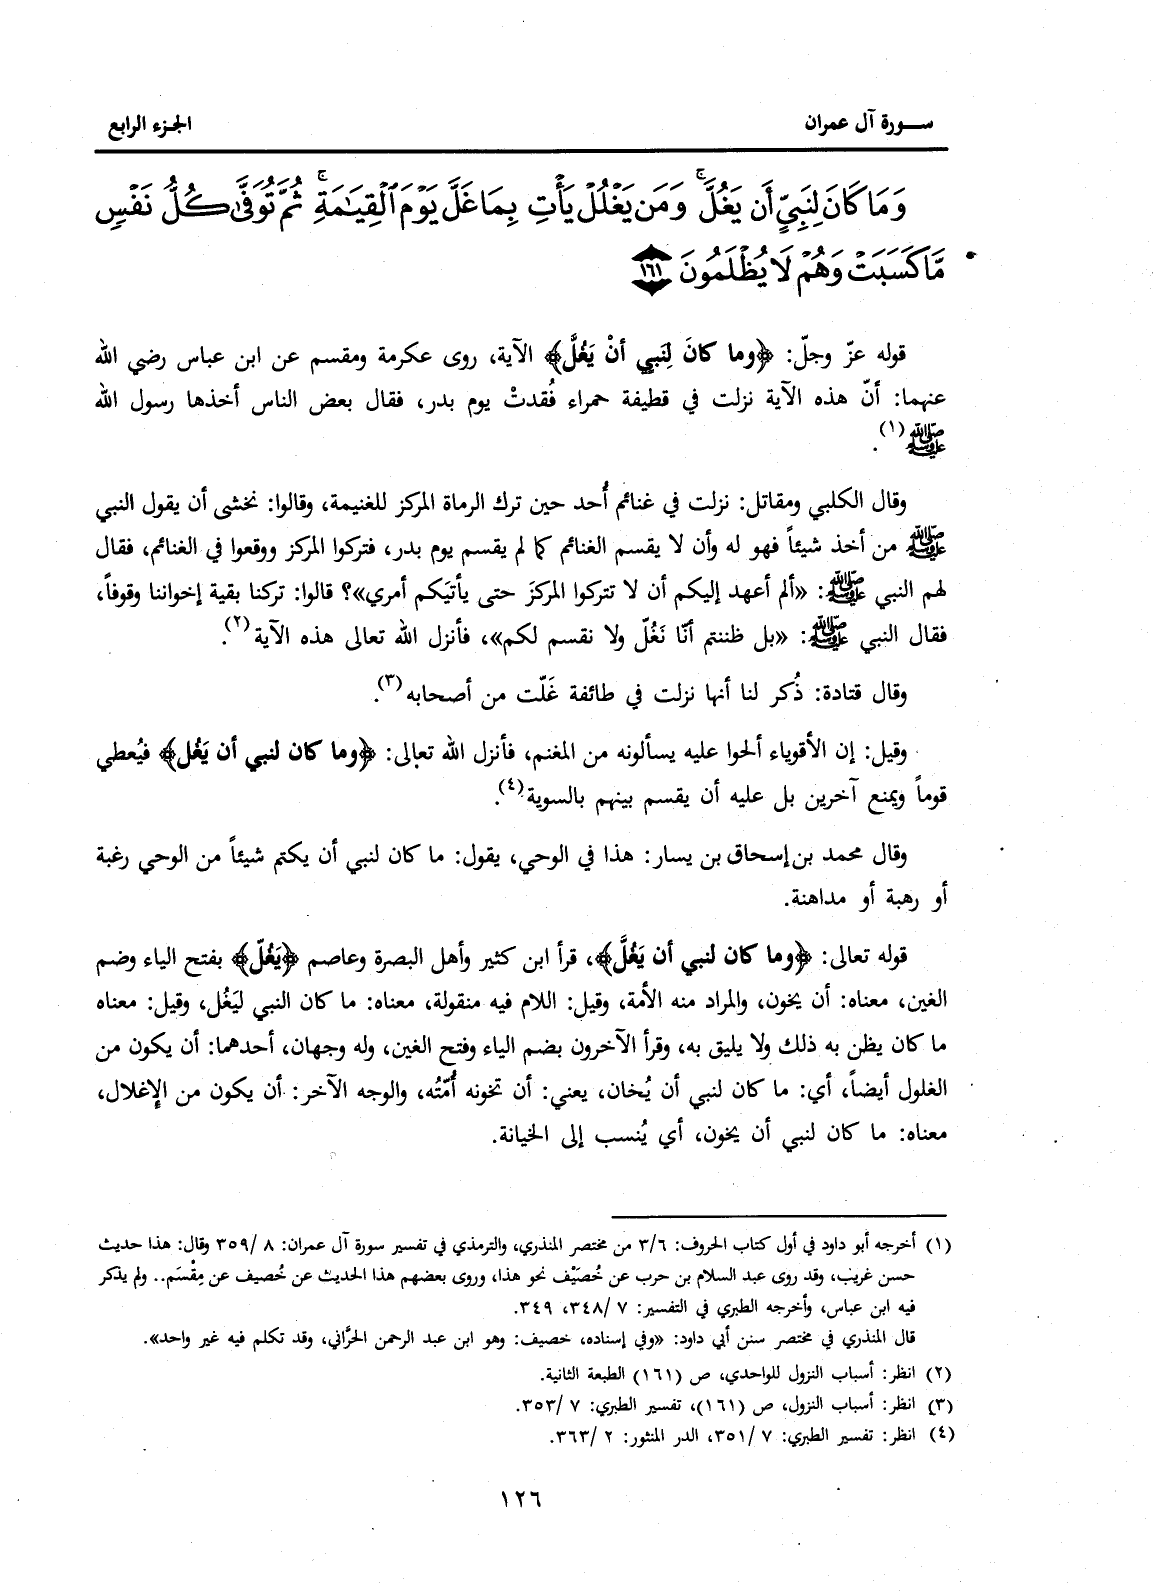 سورة آل عمران
الجزء الرابع
وَمَا كَانَ لِنَبِيٍّ أَن يَغُلَّ ۚ وَمَن يَغْلُلْ يَأْتِ بِمَا غَلَّ يَوْمَ ٱلْقِيَٰمَةِ ۚ ثُمَّ تُوَفَّىٰ كُلُّ نَفْسٍ
مَّا كَسَبَتْ وَهُمْ لَا يُظْلَمُونَ ١٦١
قوله عزّ وجلّ: ﴿وما كانَ لِنَبي أنْ يَغُلَّ﴾ الآية، روى عكرمة ومقسم عن ابن عباس رضي الله
عنهما: أنّ هذه الآية نزلت في قطيفة حمراء فُقدتْ يوم بدر، فقال بعض الناس أخذها رسول الله
ﷺ(١).
وقال الكلبي ومقاتل: نزلت في غنائم أُحد حين ترك الرماة المركز للغنيمة، وقالوا: نخشى أن يقول النبي
ﷺ من أخذ شيئاً فهو له وأن لا يقسم الغنائم كما لم يقسم يوم بدر، فتركوا المركز ووقعوا في الغنائم، فقال
لهم النبي ﷺ: «ألم أعهد إليكم أن لا تتركوا المركزَ حتى يأتيَكم أمري»؟ قالوا: تركنا بقية إخواننا وقوفاً،
فقال النبي ﷺ: «بل ظننتم أنّا نَغُلّ ولا نقسم لكم»، فأنزل الله تعالى هذه الآية(٢).
وقال قتادة: ذُكر لنا أنها نزلت في طائفة غَلّت من أصحابه(٣).
وقيل: إن الأقوياء ألحوا عليه يسألونه من المغنم، فأنزل الله تعالى: ﴿وما كان لنبي أن يَغُل﴾ فيُعطي
قوماً ويمنع آخرين بل عليه أن يقسم بينهم بالسوية(٤).
وقال محمد بن إسحاق بن يسار: هذا في الوحي، يقول: ما كان لنبي أن يكتم شيئاً من الوحي رغبة
أو رهبة أو مداهنة.
قوله تعالى: ﴿وما كان لنبي أن يَغُلَّ﴾، قرأ ابن كثير وأهل البصرة وعاصم ﴿يَغُلّ﴾ بفتح الياء وضم
الغين، معناه: أن يخون، والمراد منه الأمة، وقيل: اللام فيه منقولة، معناه: ما كان النبي ليَغُل، وقيل: معناه
ما كان يظن به ذلك ولا يليق به، وقرأ الآخرون بضم الياء وفتح الغين، وله وجهان، أحدهما: أن يكون من
الغلول أيضاً، أي: ما كان لنبي أن يُخان، يعني: أن تخونه أُمّتُه، والوجه الآخر: أن يكون من الإغلال،
معناه: ما كان لنبي أن يخون، أي يُنسب إلى الخيانة.
(١) أخرجه أبو داود في أول كتاب الحروف: ٣/٦ من مختصر المنذري، والترمذي في تفسير سورة آل عمران: ٨ /٣٥٩ وقال: هذا حديث
حسن غريب، وقد روى عبد السلام بن حرب عن خُصَيْف نحو هذا، وروى بعضهم هذا الحديث عن خُصيف عن مِقْسَم.. ولم يذكر
فيه ابن عباس، وأخرجه الطبري في التفسير: ٧ /٣٤٨، ٣٤٩.
قال المنذري في مختصر سنن أبي داود: «وفي إسناده، خصيف: وهو ابن عبد الرحمن الحرَّاني، وقد تكلم فيه غير واحد».
(٢) انظر: أسباب النزول للواحدي، ص (١٦١) الطبعة الثانية.
(٣) انظر: أسباب النزول، ص (١٦١)، تفسير الطبري: ٧ /٣٥٣.
(٤) انظر: تفسير الطبري: ٧ /٣٥١، الدر المنثور: ٢ /٣٦٣.
١٢٦